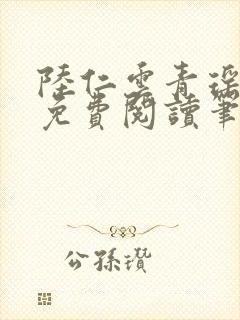 陸仁雲青瑶
免費閱讀筆
公孫瓚